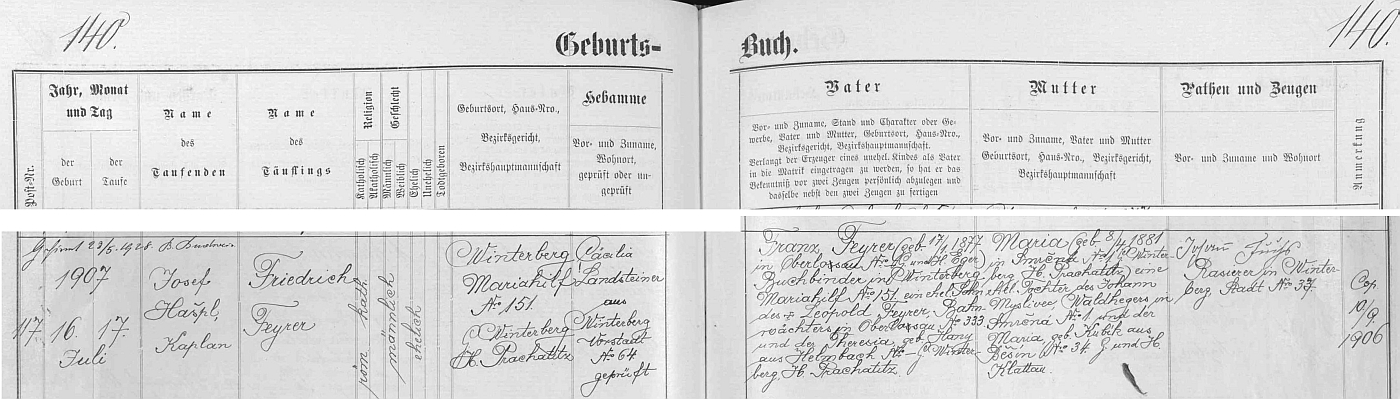 140.
Geburts-
Buch.
140.
Post-Nr.
Jahr, Monat
und Tag
der
Geburt
der
Taufe
Name
des
Taufenden
Name
des
Täuflings
Religion
Katholisch
Akatholisch
Geschlecht
Männlich
Weiblich
Ehelich
Unehelich
Todtgeboren
Geburtsort, Haus-Nro.,
Bezirksgericht,
Bezirkshauptmannschaft
Hebamme
Vor- und Zuname,
Wohnort,
geprüft oder un-
geprüft
Vater
Vor- und Zuname, Stand und Charakter oder Ge-
werbe, Vater und Mutter, Geburtsort, Haus-Nro.,
Bezirksgericht, Bezirkshauptmannschaft.
Verlangt der Erzeuger eines unehel. Kindes als Vater
in die Matrik eingetragen zu werden, so hat er das
Bekenntniß vor zwei Zeugen persönlich abzulegen und
dasselbe nebst den zwei Zeugen zu fertigen
Mutter
Vor- und Zuname, Vater und Mutter
Geburtsort, Haus-Nro., Bezirksgericht,
Bezirkshauptmannschaft
Pathen und Zeugen
Vor- und Zuname und Wohnort
Anmerkung
23/5. 1928.
1907
16. 17.
Juli
Josef
Hašpl,
Kaplan
Friedrich
Feyrer
röm. kath.
männlich
ehelich
Winterberg
Mariahilf
No 151.
G. Winterberg
H. Prachatitz
Cäcilia
Landsteiner
aus
Winterberg
Vorstadt
No 64
geprüft
Franz Feyrer (geb. 17/1 1877
in Oberlossau No G. und H. Eger)
Buchbinder in Winterberg
Mariahilf No 151. ein ehel. Sohn
des Leopold Feyrer, Bahn-
wächters in Oberlossau No 333
und der Theresia, geb. Hany
aus Helmbach No – G. Winter-
berg, H. Prachatitz.
Maria (geb. 8/4 1881
in Smrčná No 1 G. Winter-
berg H. Prachatitz) eine
Tochter des Johann
Myslivec, Waldhegers in
Smrčná No 1. und der
Maria, geb. Kubik aus
Běšin No 34. G. und H.
Klattau.
Johann Fuchs
Rasierer in Winter-
berg, Stadt No 37
Cop.
10/9
1906